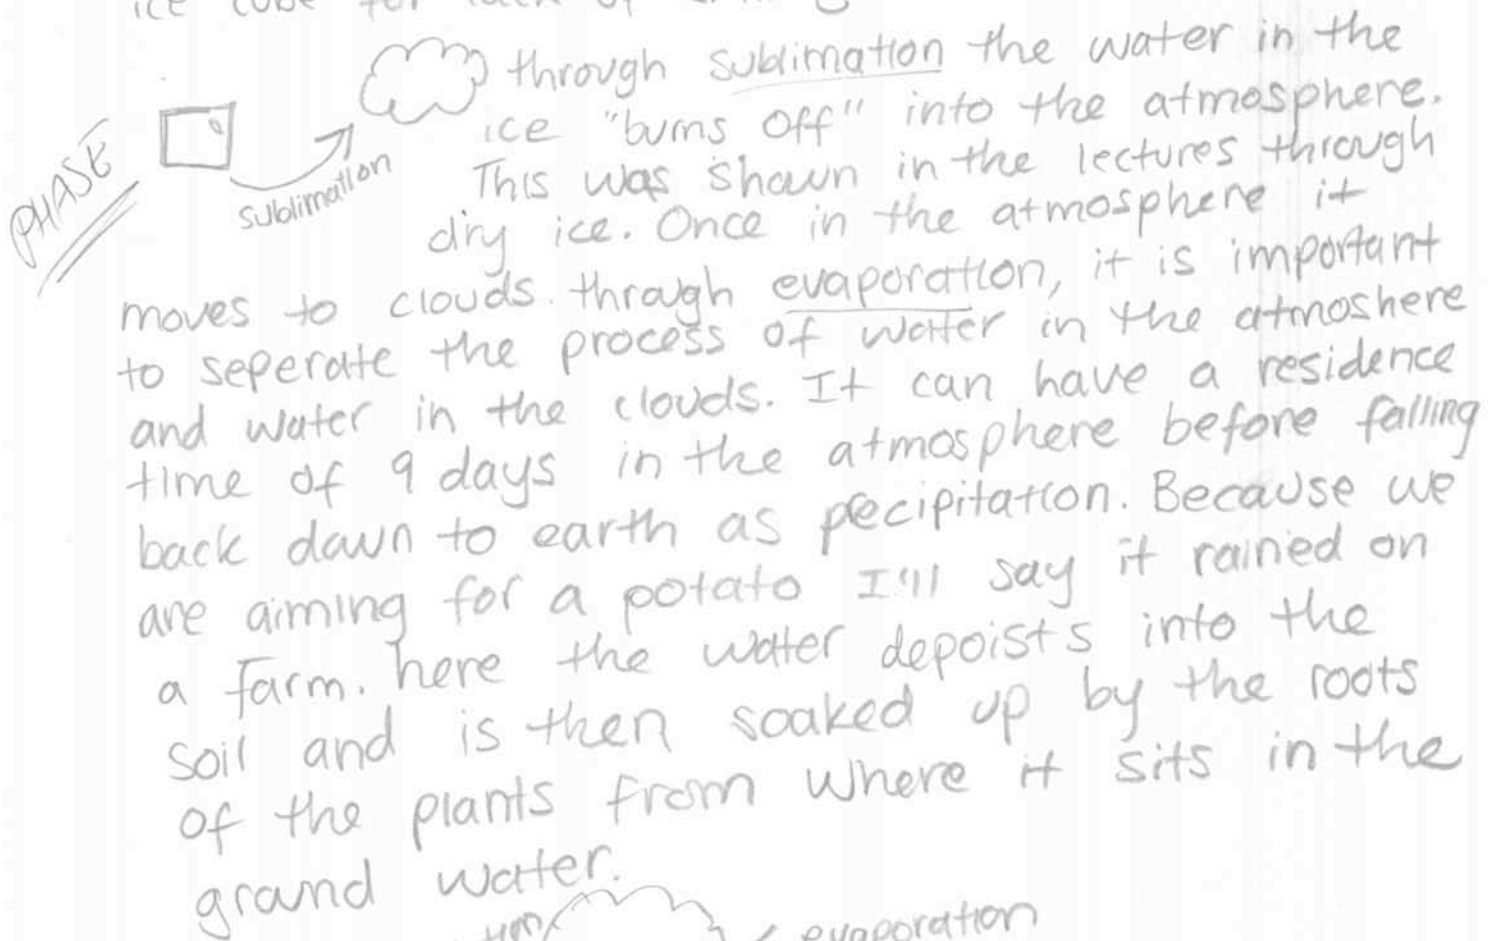 ice cube for lack of
through sublimation the water in the
ice "burns off" into the atmosphere.
PHASE
sublimation
This was shown in the lectures through
dry ice. Once in the atmosphere it
moves to clouds. through evaporation, it is important
to seperate the process of water in the atmoshere
and water in the clouds. It can have a residence
time of 9 days in the atmosphere before falling
back down to earth as precipitation. Because we
are aiming for a potato I'll say it rained on
a farm. here the water depoists into the
soil and is then soaked up by the roots
of the plants from where it sits in the
ground water.
evaporation